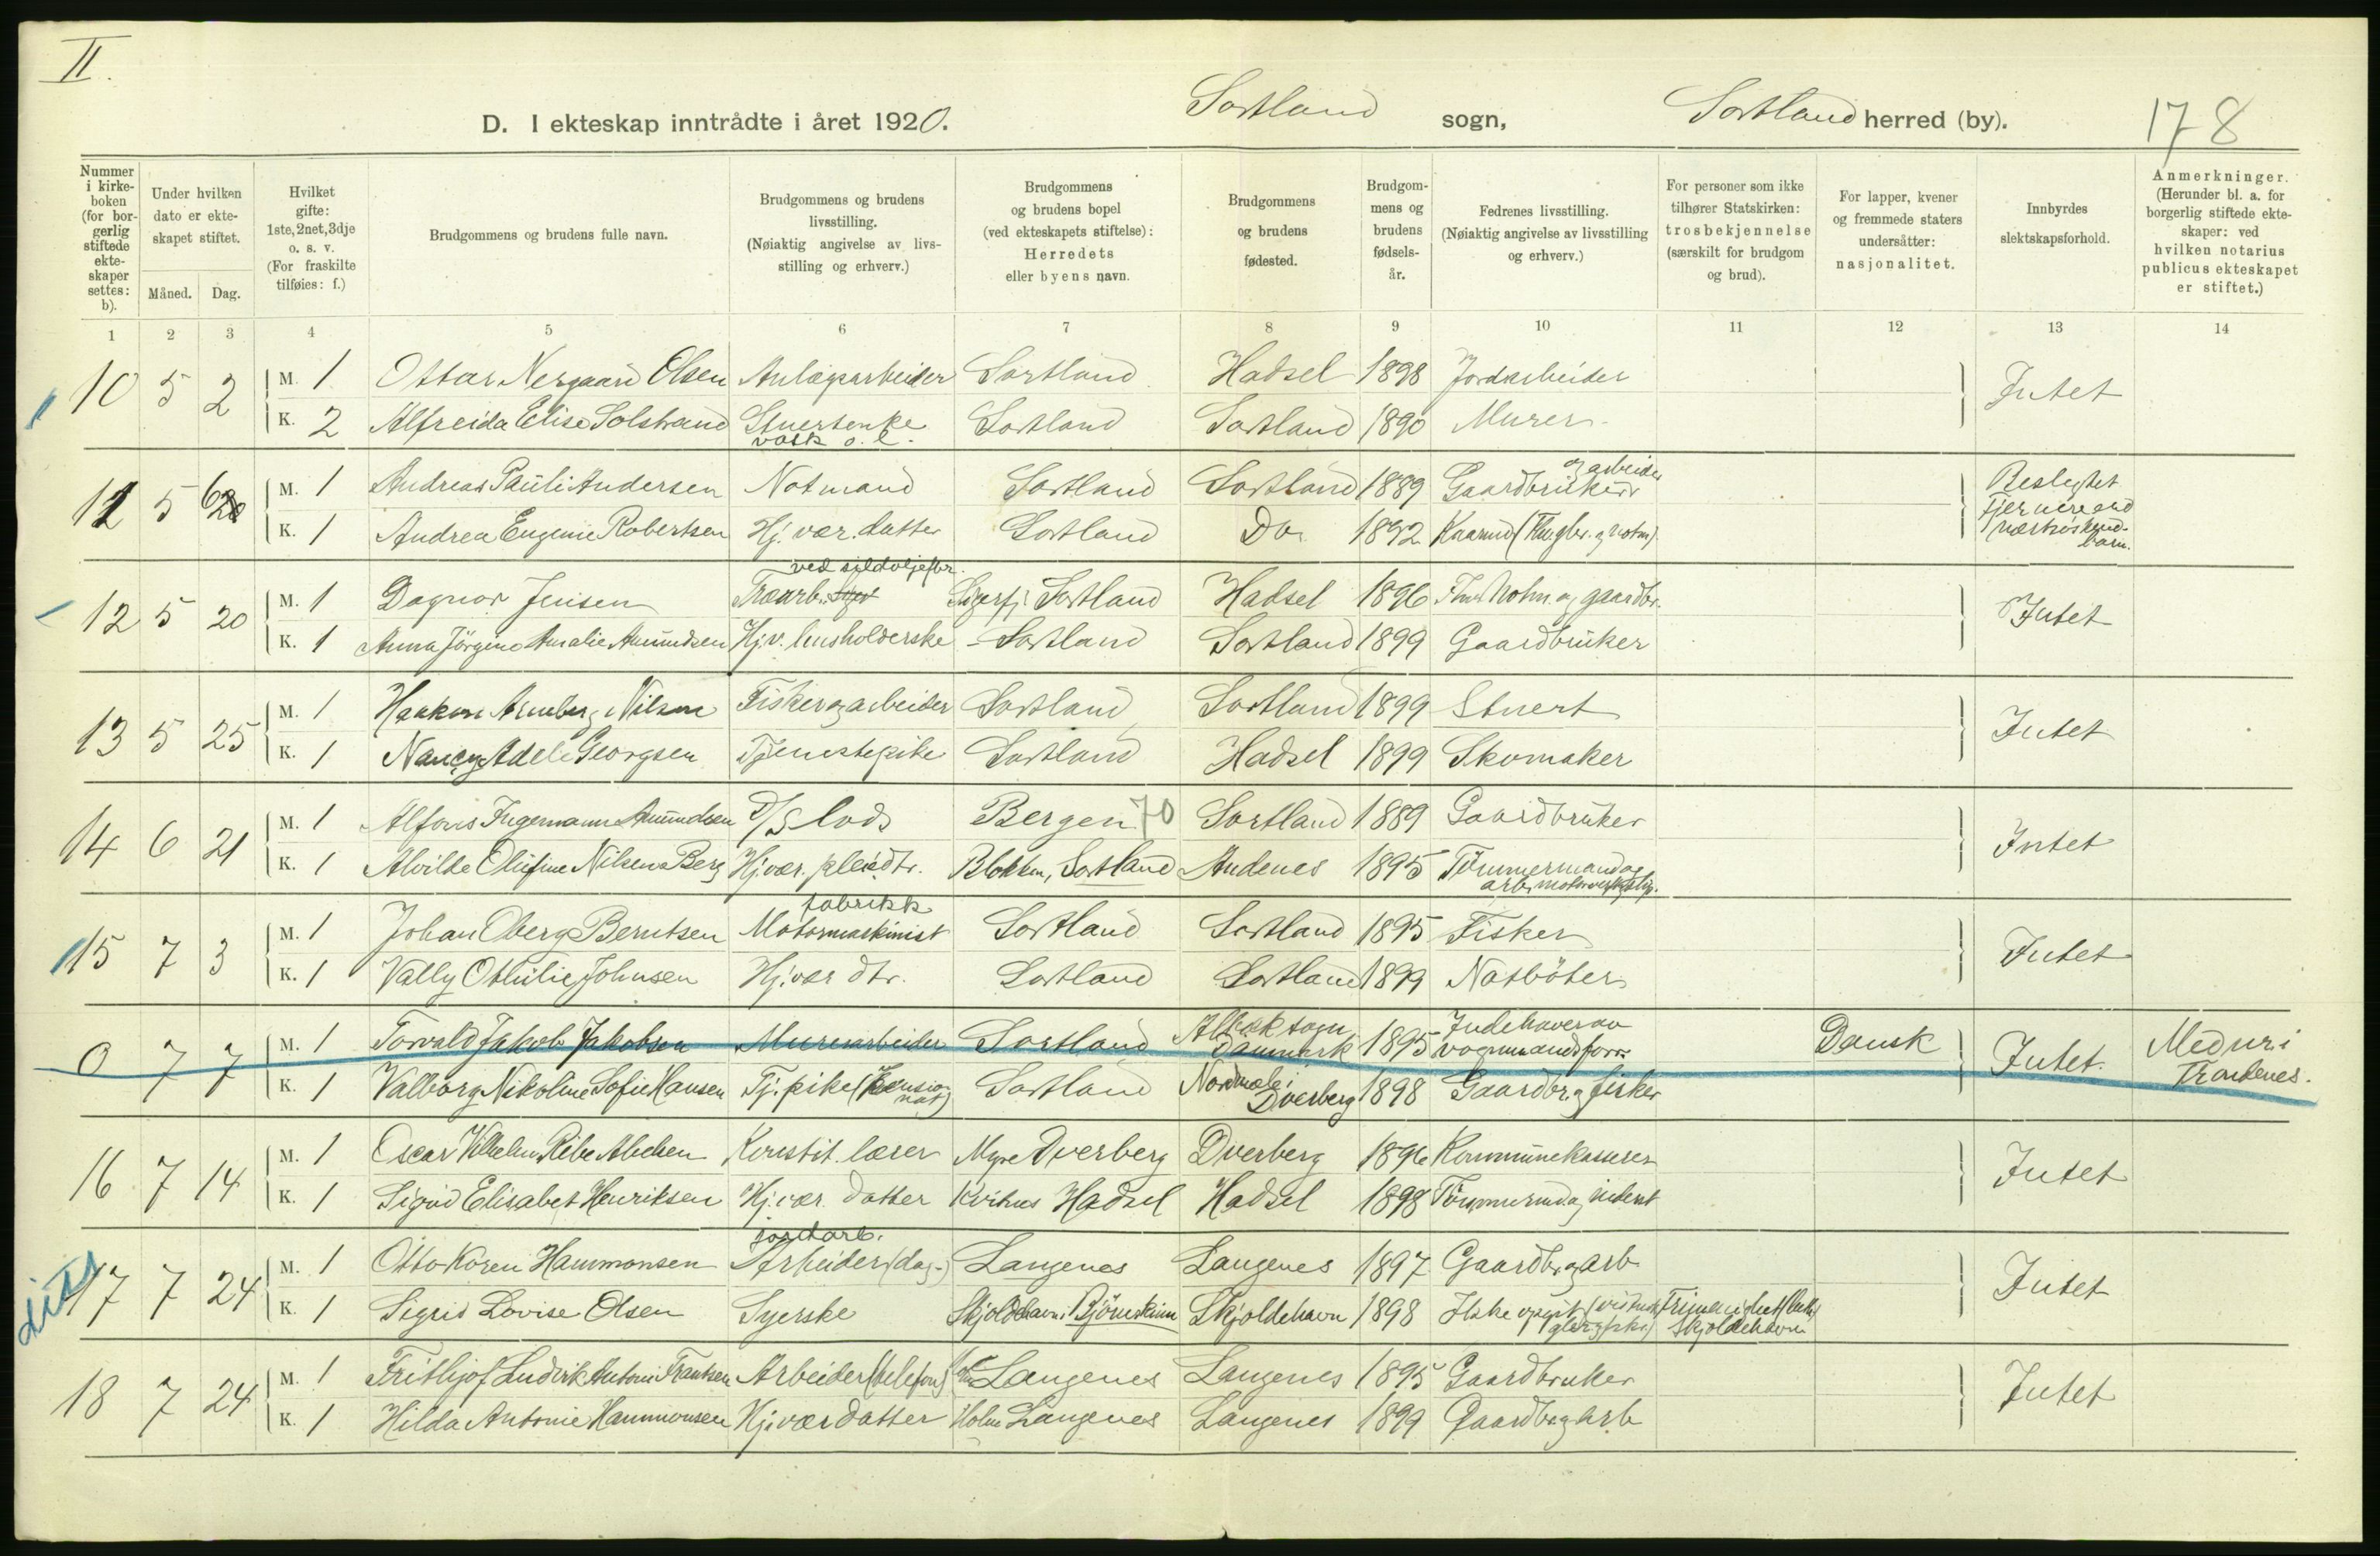 II.
D. I ekteskap inntrådte i året 1920. Sortland sogn, Sortland herred (by). 178
Nummer i kirkeboken (for borgerlig stiftede ekteskaper settes: b).
Under hvilken dato er ekteskapet stiftet.
Måned. Dag.
Hvilket gifte: 1ste, 2net, 3dje o. s. v. (For fraskilte tilføies: f.)
Brudgommens og brudens fulle navn.
Brudgommens og brudens livsstilling. (Nøiaktig angivelse av livsstilling og erhverv.)
Brudgommens og brudens bopel (ved ekteskapets stiftelse): Herredets eller byens navn.
Brudgommens og brudens fødested.
Brudgommens og brudens fødselsår.
Fedrenes livsstilling. (Nøiaktig angivelse av livsstilling og erhverv.)
For personer som ikke tilhører Statskirken: trosbekjennelse (særskilt for brudgom og brud).
For lapper, kvener og fremmede staters undersåtter: nasjonalitet.
Innbyrdes slektskapsforhold.
Anmerkninger. (Herunder bl. a. for borgerlig stiftede ekteskaper: ved hvilken notarius publicus ekteskapet er stiftet.)
1 2 3 4 5 6 7 8 9 10 11 12 13 14
10 5 2 M. 1 Ottar Nergaard Olsen Anlægsarbeider Sortland Hadsel 1898 Jordarbeider Intet
K. 2 Alfreida Elise Solstrand Stuertenke vask o. l. Sortland Sortland 1890 Murer
11 5 6 M. 1 Andreas Pauli Andersen Notmand Sortland Sortland 1889 Gaardbruker og arbeider Beslegtet Fjernere end næstsøskendbarn.
K. 1 Andrea Eugenie Robertsen Hj. vær. datter Sortland Do 1892 Kaarmd
12 5 20 M. 1 Dagnor Jensen Træarb. ved sildoljefbr. Sigerfj. Sortland Hadsel 1896 og gaardbr. Intet
K. 1 Anna Jörgine Amalie Amundsen Hj. v. husholderske - Sortland Sortland 1899 Gaardbruker
13 5 25 M. 1 Haakon Arnberg Nilsen Fisker og arbeider Sortland Sortland 1899 Stuert Intet
K. 1 Nancy Adele Georgsen Tjenestepike Sortland Hadsel 1899 Skomaker
14 6 21 M. 1 Alfons Ingemann Amundsen D/S lods Bergen 70 Sortland 1889 Gaardbruker Intet
K. 1 Alvilde Olufine Nilsen Berg Hj. vær. pleiedtr. Blokken, Sortland Andenes 1895 Tömmermand og arb.
15 7 3 M. 1 Johan Oberg Berntsen Motormaskinist fabrikk Sortland Sortland 1895 Fisker Intet
K. 1 Vally Othilie Johnsen Hj. vær dtr. Sortland Sortland 1899 Notböter
0 7 7 M. 1 Torvald Jakob Jakobsen Murerarbeider Sortland Albæk sogn Danmark 1895 Indehaver av vognmandsforr. Dansk Intet. Medvri Trondenes.
K. 1 Valborg Nikoline Sofie Hansen Tj. pike (Pensionat) Sortland Nordmele i Dverberg 1898 Gaardbr. og fisker
16 7 14 M. 1 Oscar Vilhelm Ribe Abelsen Konstit. lærer Myre Dverberg Dverberg 1896 Kommunekasserer Intet
K. 1 Sigrid Elisabet Henriksen Hj. vær. datter Kvitnes Hadsel Hadsel 1898 Tömmermd. og
17 7 24 M. 1 Otto Koren Hammonsen Arbeider (dag-) jordarb. Langenes Langenes 1897 Gaardbr. og arb. Intet
K. 1 Sigrid Lovise Olsen Syerske Skjoldehavn i Bjørnskinn Skjoldehavn 1898 Ikke opgit Skjoldehavn
18 7 24 M. 1 Frithjof Ludvik Antoni Frantsen Arbeider (telefon) Langenes Langenes 1895 Gaardbruker Intet
K. 1 Hilda Antonie Hammonsen Hj. vær datter Holm Langenes Langenes 1899 Gaardbr og arb